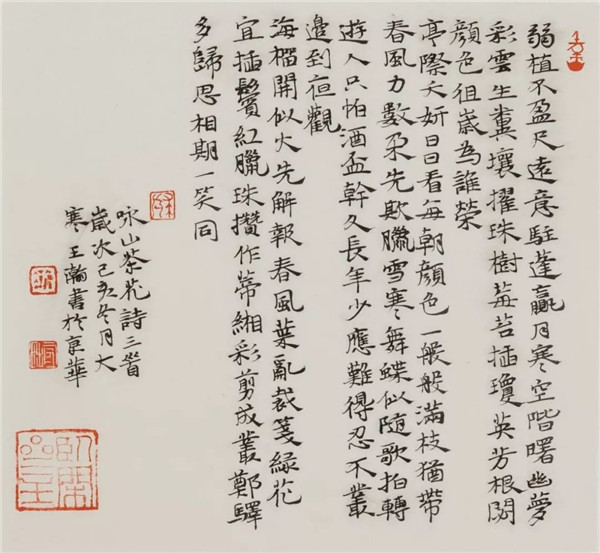 弱植不盈尺遠意駐蓬贏月寒空階曙幽夢
彩雲生糞壤擢珠樹莓苔插瓊英芳根閟
顏色徂歲為誰榮
亭際夭妍日日看每朝顏色一般般滿枝猶帶
春風力數朶先欺臘雪寒舞蝶似隨歌拍轉
遊人只怕酒盃幹久長年少應難得忍不叢
邊到夜觀
海榴開似火先解報春風葉亂裁箋綠花
宜插鬢紅臘珠攢作蒂緗彩剪成叢鄭驛
多歸思相期一笑同
咏山茶花詩三首
歲次己亥冬月大
寒王瀚書於京華